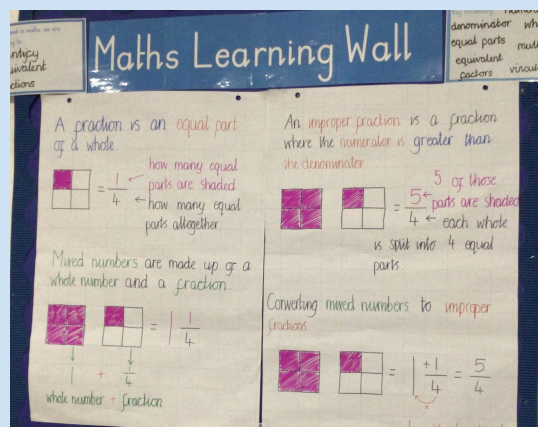 in maths, we are
denominator
wh
equal parts
mult
equivalent
factors
vincul
Maths Learning Wall
A fraction is an equal part
of a whole.
how many equal
parts are shaded
= 1/4
how many equal
parts altogether
Mixed numbers are made up of a
whole number and a fraction.
= 1 1/4
1 + 1/4
whole number + fraction
An improper fraction is a fraction
where the numerator is greater than
the denominator
= 5/4
5 of those
parts are shaded
each whole
is split into 4 equal
parts
Converting mixed numbers to improper
fractions
= 1 +1/4 = 5/4
x